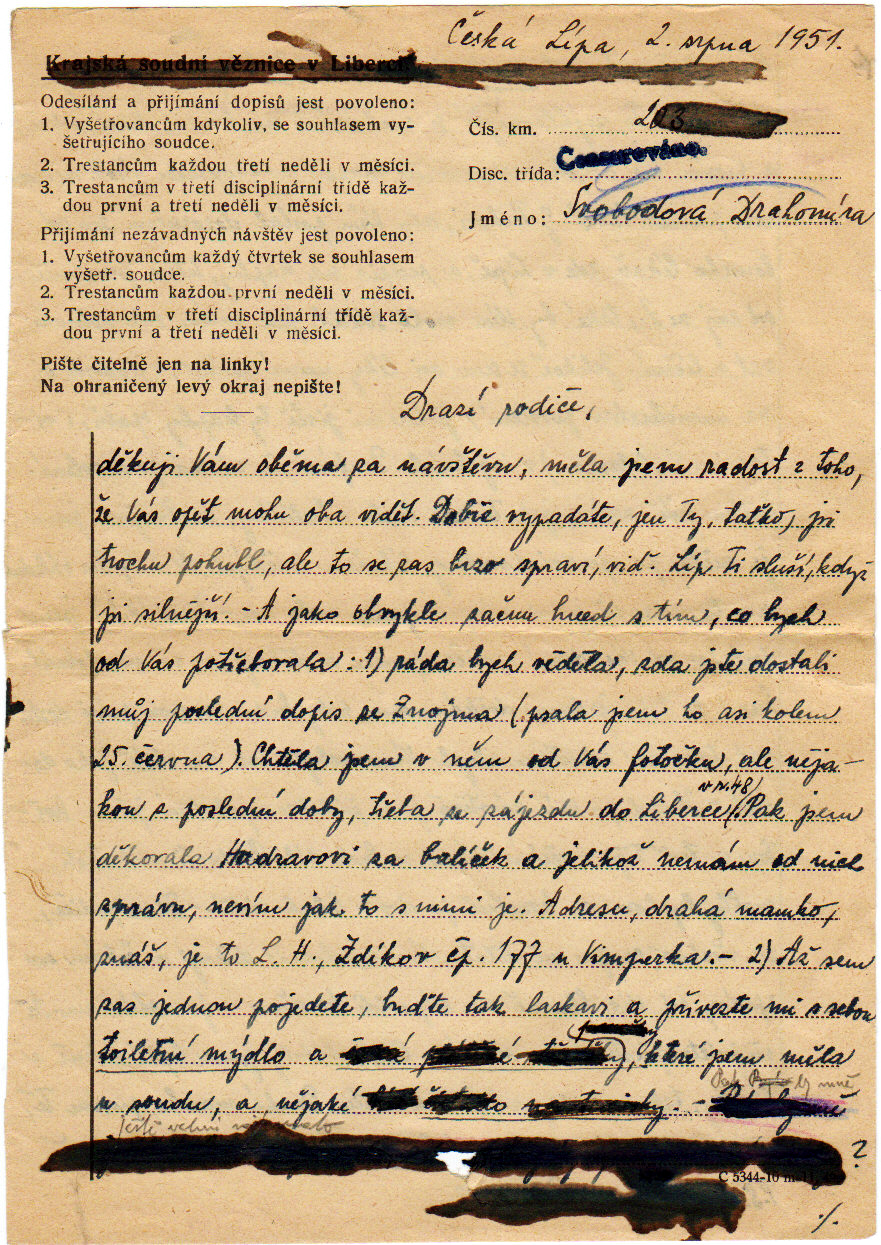 Česká Lípa, 2. srpna 1951.
Krajská soudní věznice v Liberci
Odesílání a přijímání dopisů jest povoleno:
1. Vyšetřovancům kdykoliv, se souhlasem vy-
šetřujícího soudce.
2. Trestancům každou třetí neděli v měsíci.
3. Trestancům v třetí disciplinární třídě kaž-
dou první a třetí neděli v měsíci.
Přijímání nezávadných návštěv jest povoleno:
1. Vyšetřovancům každý čtvrtek se souhlasem
vyšetř. soudce.
2. Trestancům každou první neděli v měsíci.
3. Trestancům v třetí disciplinární třídě kaž-
dou první a třetí neděli v měsíci.
Pište čitelně jen na linky!
Na ohraničený levý okraj nepište!
Čís. km. 203
Censurováno.
Disc. třída:
Jméno: Svobodová Drahomíra
Drazí rodiče,
děkuji Vám oběma za návštěvu, měla jsem radost z toho,
že Vás opět mohu oba vidět. Dobře vypadáte, jen Ty, taťko, jsi
trochu pohubl, ale to se zas brzo spraví, viď. Líp Ti sluší, když
jsi silnější. - A jako obvykle začnu hned s tím, co bych
od Vás potřebovala: 1) ráda bych věděla, zda jste dostali
můj poslední dopis ze Znojma (psala jsem ho asi kolem
25. června). Chtěla jsem v něm od Vás fotočku, ale něja-
kou z poslední doby, třeba ze zájezdu do Liberce (v r. 48). Pak jsem
děkovala Hadravovi za balíček a jelikož nemám od nich
zprávu, nevím jak to s nimi je. Adresu, drahá mamko,
znáš, je to L. H., Zdíkov čp. 177 u Vimperka. - 2) Až sem
zas jednou pojedete, buďte tak laskavi a přivezte mi s sebou
toiletní mýdlo a které jsem měla
u soudu, a nějaké
C 5344-10
?
./.